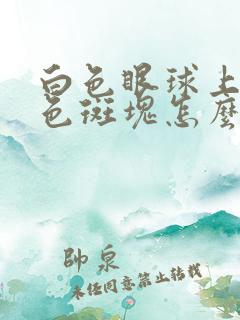 白色眼球上
色斑塊怎麼
帥泉
未经同意禁止转载